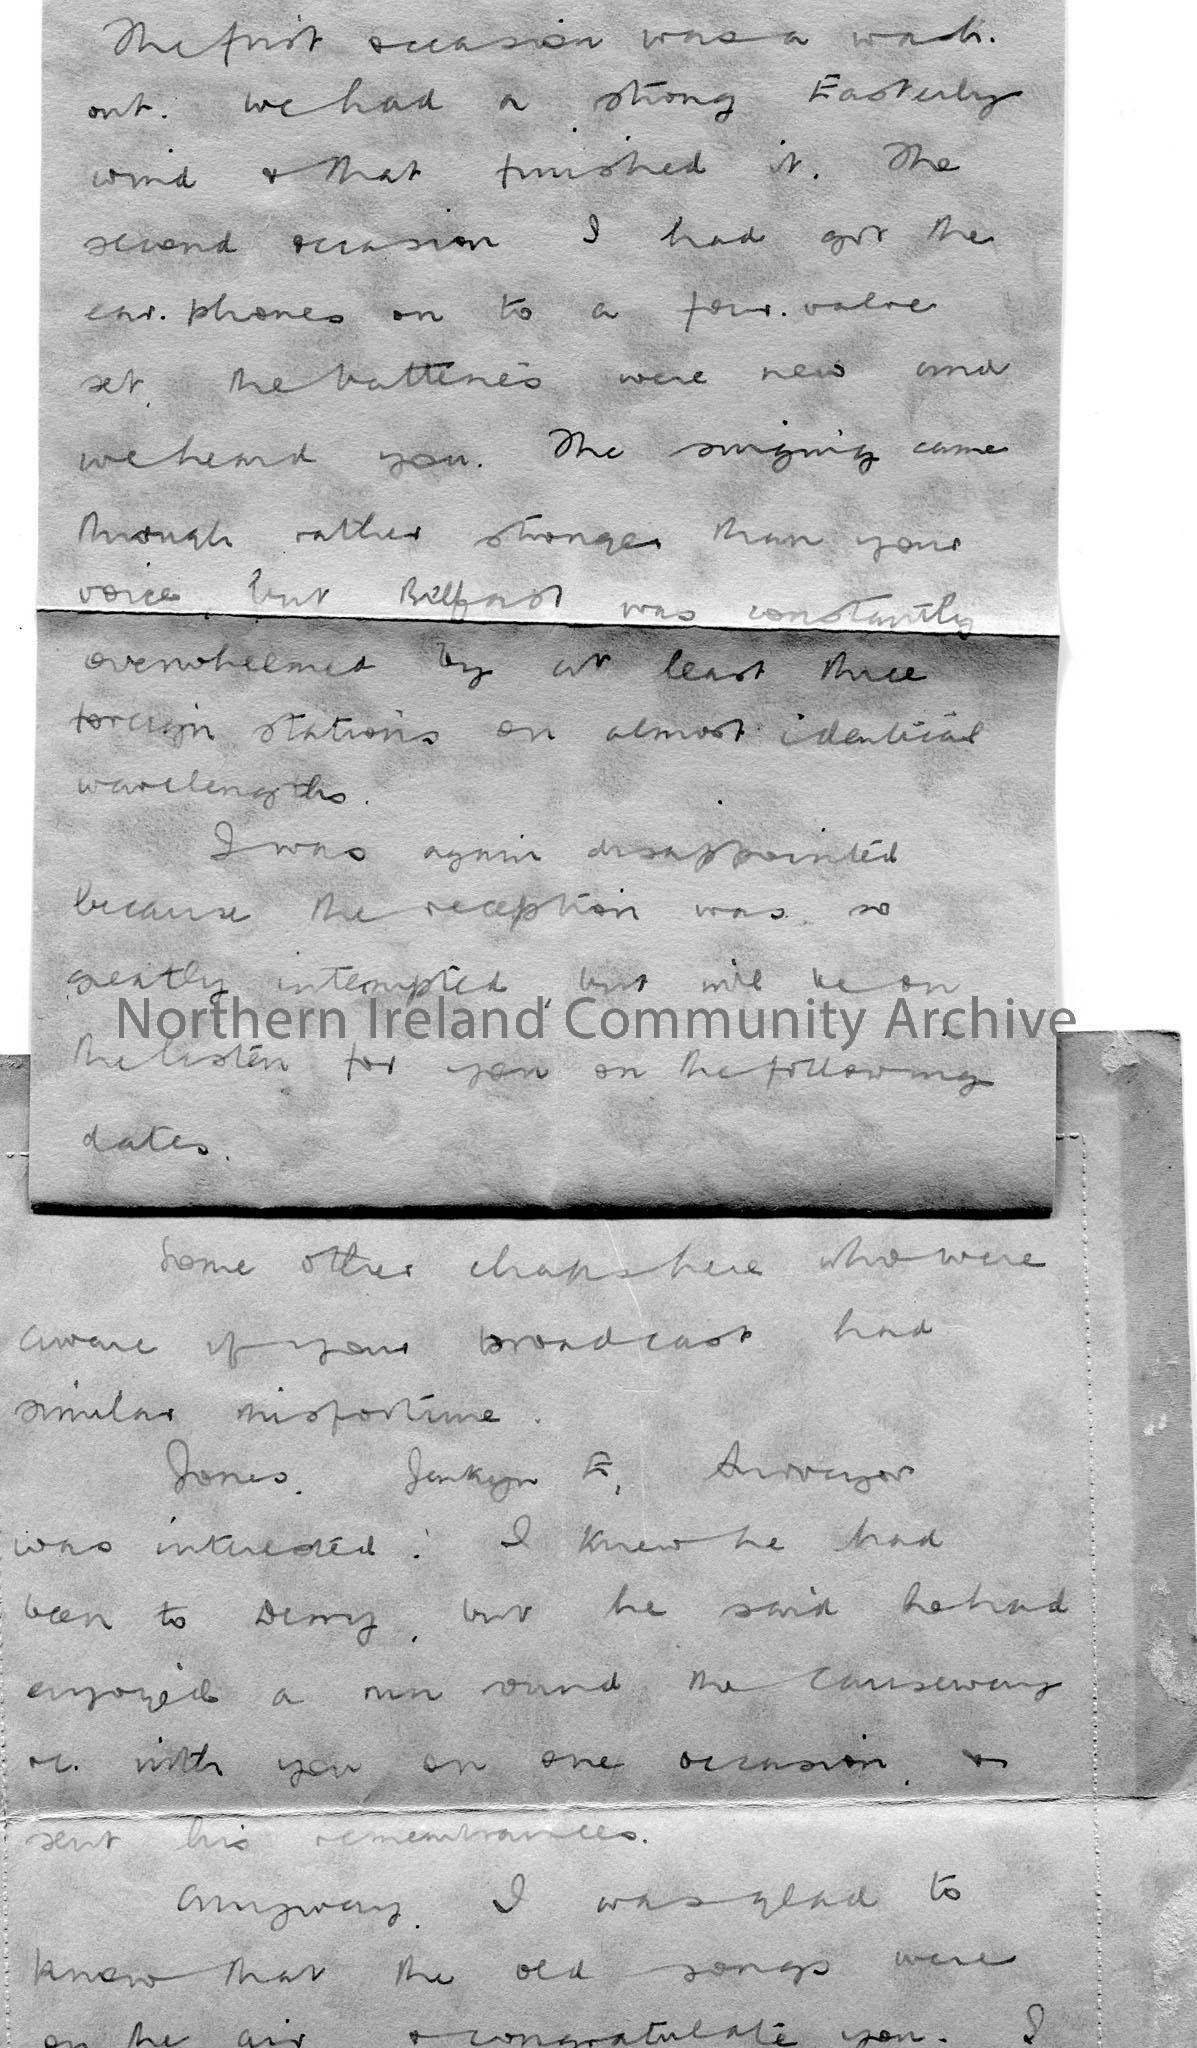 The first occasion was a wash.
out. We had a strong Easterly
wind & that finished it. The
second occasion I had got the
ear.phones on to a four.valve
set, the batteries were new and
we heard you. The singing came
through rather stronger than your
voice, but Belfast was constantly
overwhelmed by at least three
foreign stations on almost identical
wavelengths.
I was again disappointed
because the reception was so
greatly interrupted, but will be on
Northern Ireland Community Archive
the listen for you on the following
dates.
Some other chaps here who were
aware of your broadcast had
similar misfortune.
Jones, Jenkyn E, Surveyor
was interested. I knew he had
been to Derry, but he said he had
enjoyed a run round the Causeway
&c. with you on one occasion, &
sent his remembrances.
Anyway, I was glad to
know that the old songs were
on the air & congratulate you. I